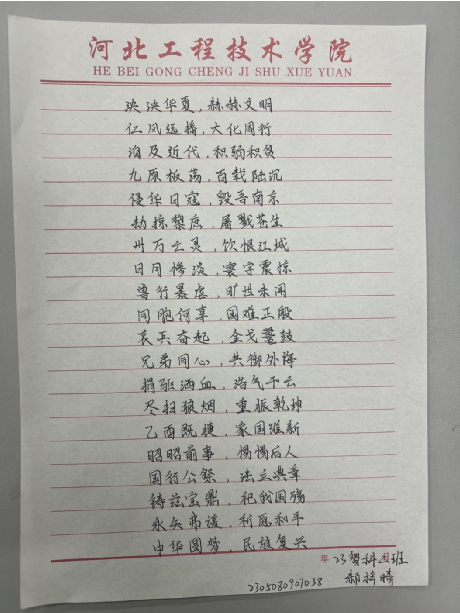 河北工程技术学院
HE BEI GONG CHENG JI SHU XUE YUAN
泱泱华夏，赫赫文明
仁风远播，大化周行
洎及近代，积弱积贫
九原板荡，百载陆沉
侵华日寇，毁吾南京
劫掠黎庶，屠戮苍生
卅万亡灵，饮恨江城
日月惨淡，寰宇震惊
兽行暴虐，旷世未闻
同胞何辜，国难正殷
哀兵奋起，金戈鼍鼓
兄弟同心，共御外侮
捐躯洒血，浩气干云
尽扫狼烟，重振乾坤
乙酉既捷，家国维新
昭昭前事，惕惕后人
国行公祭，法立典章
铸兹宝鼎，祀我国殇
永矢弗谖，祈愿和平
中华圆梦，民族复兴
年 23智科 班
2305080907038